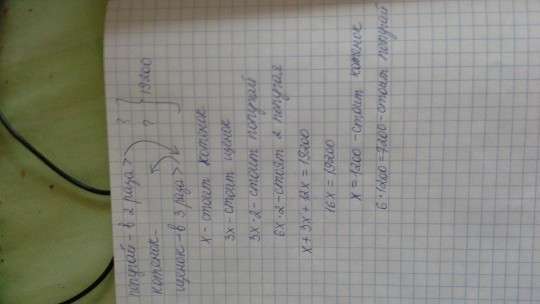 попугай - в 2 раза > ?
котёнок - ? 19200
щенок - в 3 раза >
х - стоит котёнок
3х - стоит щенок
3х·2 - стоит попугай
6х·2 - стоят 2 попугая
х + 3х + 12х = 19200
16х = 19200
х = 1200 - стоит котёнок
6·1200 = 7200 - стоит попугай